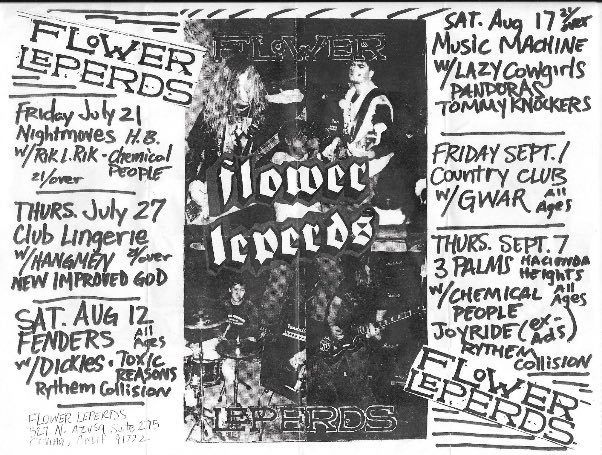 FLOWER
LEPERDS
Friday July 21
Nightmoves H.B.
w/RIK L. RIK - Chemical
PEOPLE
21/over
THURS. July 27
Club Lingerie
w/HANGMEN 21/over
NEW IMPROVED GOD
SAT. AUG 12
FENDERS All Ages
w/DICKIES · TOXIC
REASONS
Rythem Collision
FLOWER LEPERDS
FLOWER
flower
leperds
LEPERDS
SAT. Aug 17 21/over
Music MACHINE
w/LAZY COWgirls
PANDORAS
TOMMYKNOCKERS
FRIDAY SEPT. 1
Country CLUB
w/GWAR All Ages
THURS. SEPT. 7
3 PALMS HACIENDA
HEIGHTS
w/CHEMICAL All Ages
PEOPLE
JOYRIDE (ex-
Ads)
RYTHEM
Collision
FLOWER
LEPERDS